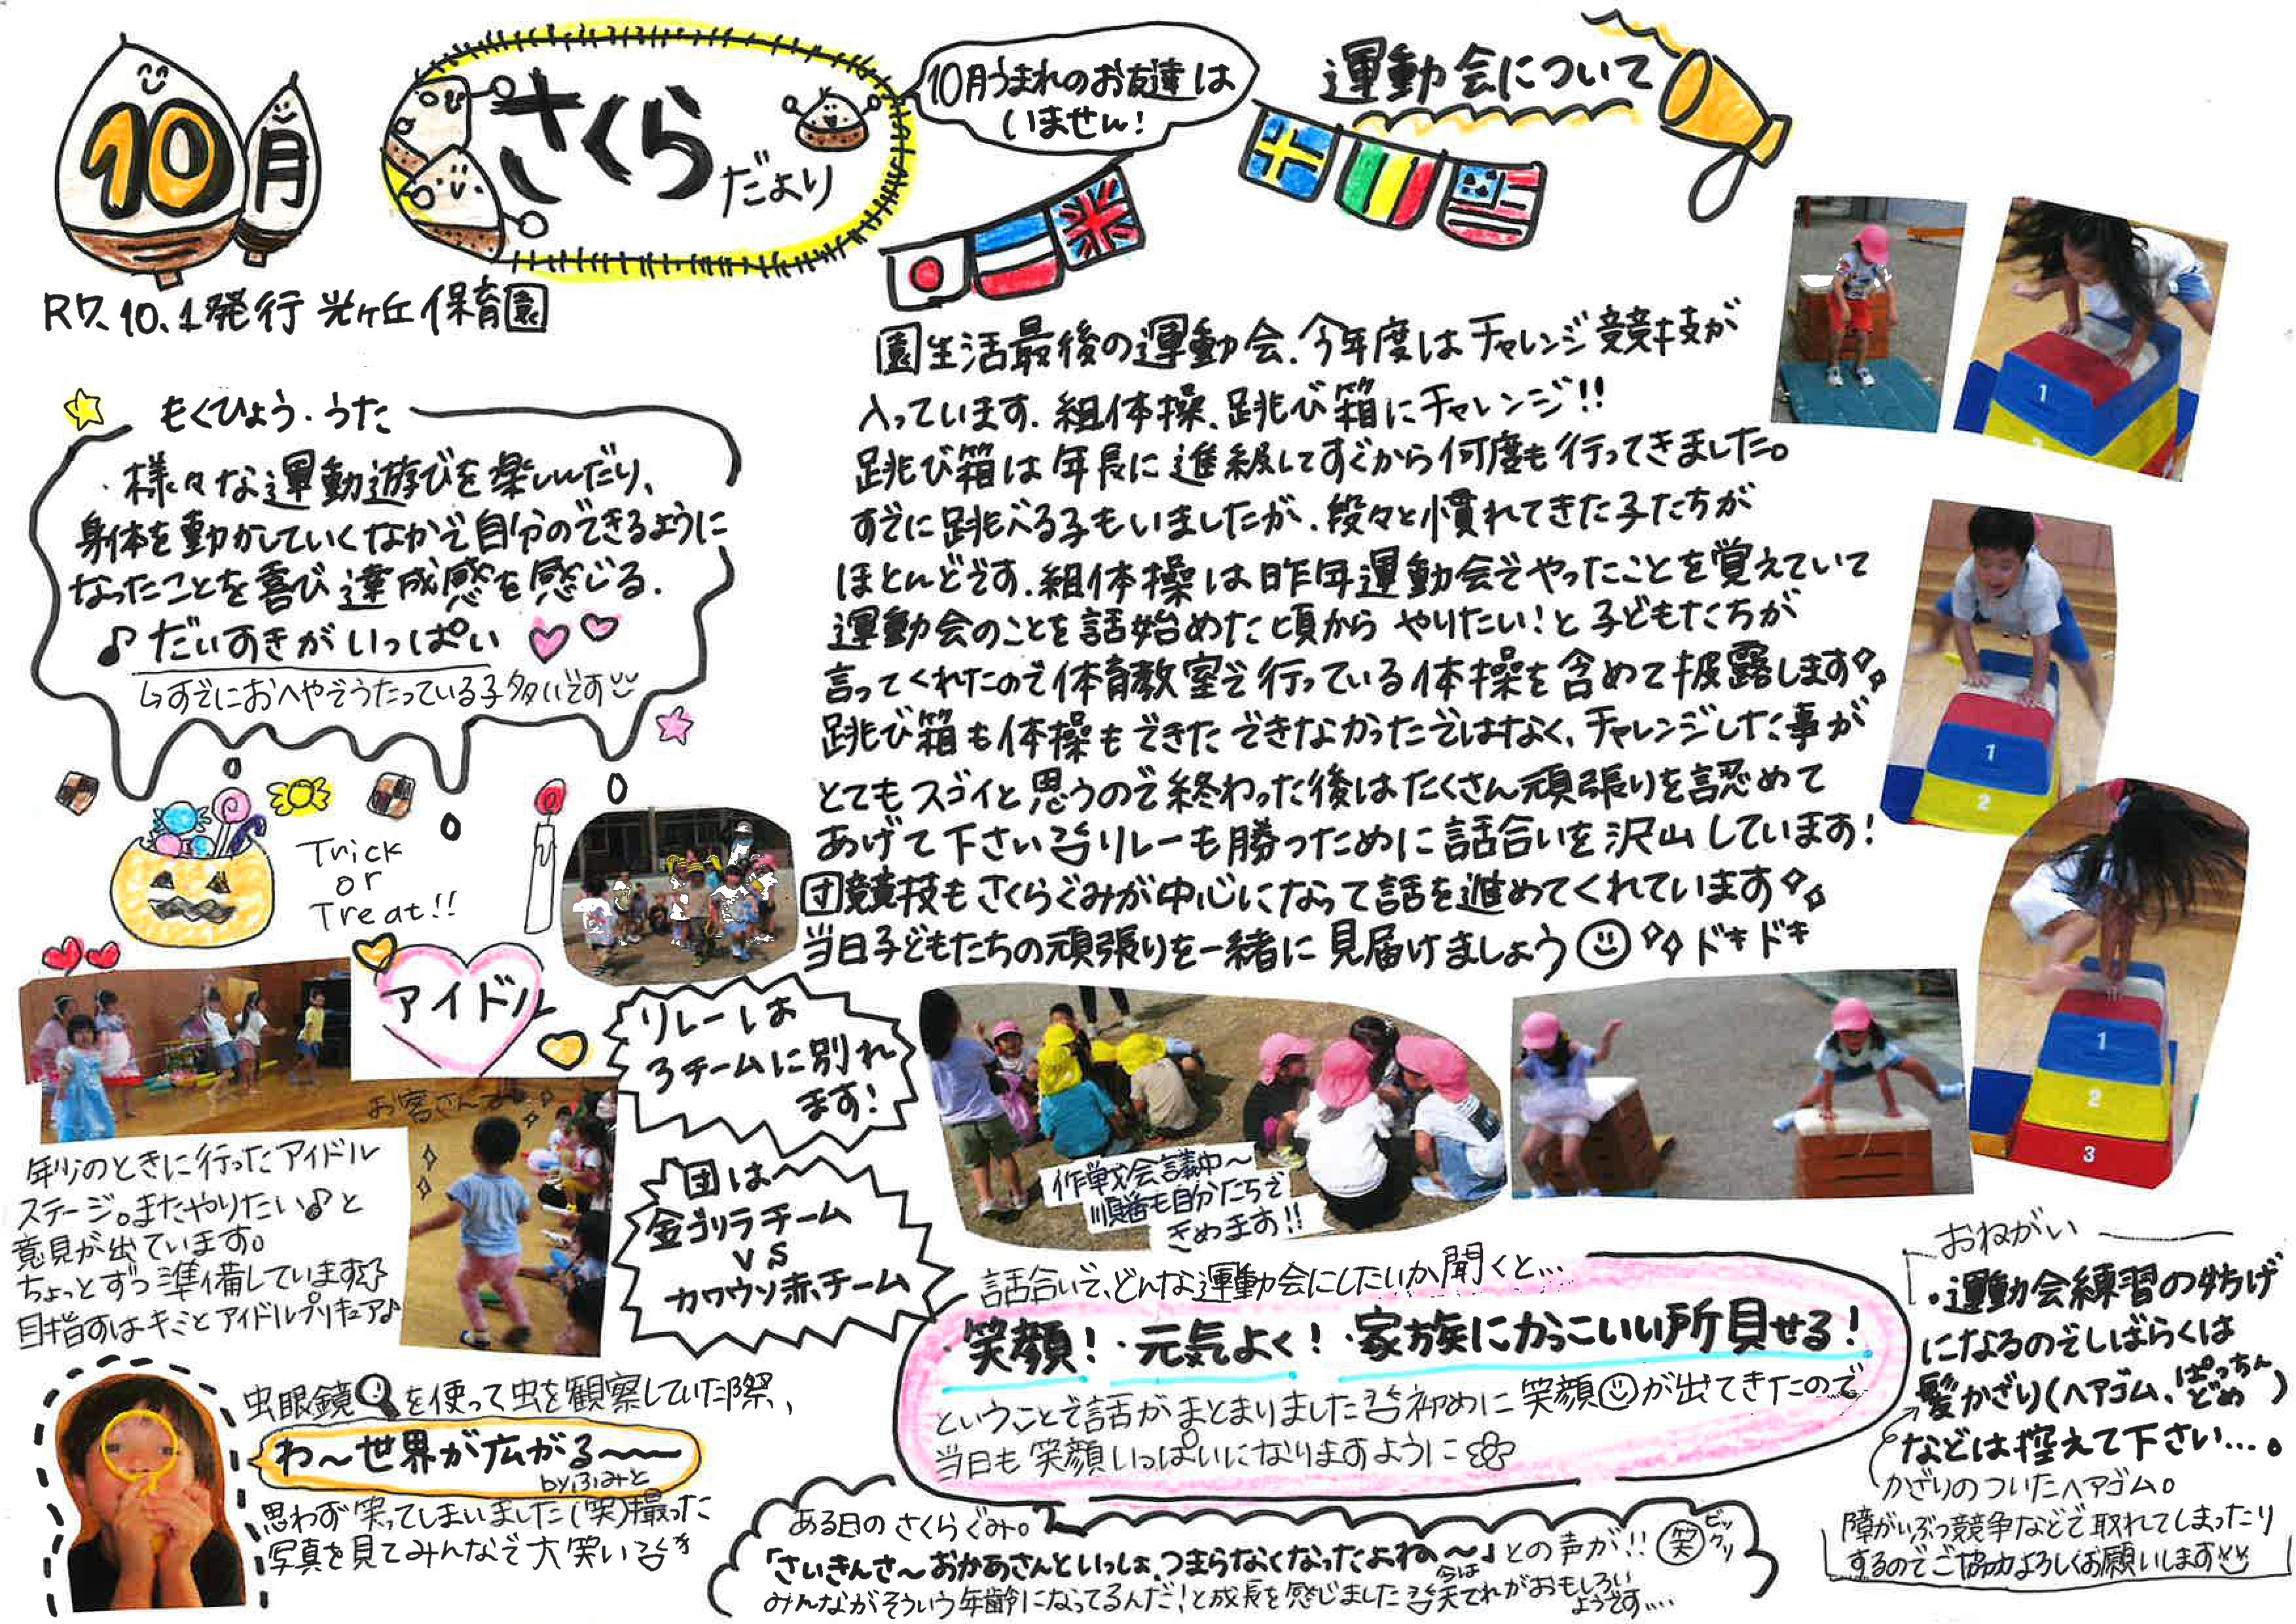 10月
さくら
だより
10月うまれのお友達は
いません!
運動会について
R7.10.1発行 光ケ丘保育園
もくひょう・うた
・様々な運動遊びを楽しんだり、
身体を動かしていくなかで自分のできるように
なったことを喜び達成感を感じる.
♪だいすきがいっぱい
↳すでにおへやでうたっている子多いです
Trick
or
Treat!!
園生活最後の運動会.今年度はチャレンジ競技が
入っています.組体操、跳び箱にチャレンジ!!
跳び箱は年長に進級してすぐから何度も行ってきました。
すでに跳べる子もいましたが、段々と慣れてきた子たちが
ほとんどです.組体操は昨年運動会でやったことを覚えていて
運動会のことを話始めた頃からやりたい!と子どもたちが
言ってくれたので体育教室で行っている体操を含めて披露します
跳び箱も体操もできたできなかったではなく、チャレンジした事が
とてもスゴイと思うので終わった後はたくさん頑張りを認めて
あげて下さい リレーも勝つために話合いを沢山しています!
団競技もさくらぐみが中心になって話を進めてくれています
当日子どもたちの頑張りを一緒に見届けましょう ドキドキ
アイドル
お客さんも
年少のときに行ったアイドル
ステージ。またやりたい♪と
意見が出ています。
ちょっとずつ準備しています
目指すはキミとアイドルプリキュア♪
リレーは
3チームに別れ
ます!
団は
金ゴリラチーム
VS
カワウソ赤チーム
作戦会議中〜
順番も自分たちで
きめます!!
1
1
2
1
2
3
話合いで、どんな運動会にしたいか聞くと…
・笑顔!・元気よく!・家族にかっこいい所見せる!
ということで話がまとまりました 初めに笑顔が出てきたので
当日も笑顔いっぱいになりますように
おねがい
・運動会練習の妨げ
になるのでしばらくは
髪かざり(ヘアゴム、ぱっちんどめ)
などは控えて下さい…。
かざりのついたヘアゴム。
障がいぶつ競争などで取れてしまったり
するのでご協力よろしくお願いします
虫眼鏡を使って虫を観察していた際、
わ〜世界が広がる〜〜
byふみと
思わず笑ってしまいました(笑)撮った
写真を見てみんなで大笑い
ある日のさくらぐみ。
「さいきんさ〜おかあさんといっしょ、つまらなくなったよね〜」との声が!!笑 ビックリ
みんながそういう年齢になってるんだ!と成長を感じました 今はえてれがおもしろいようです….